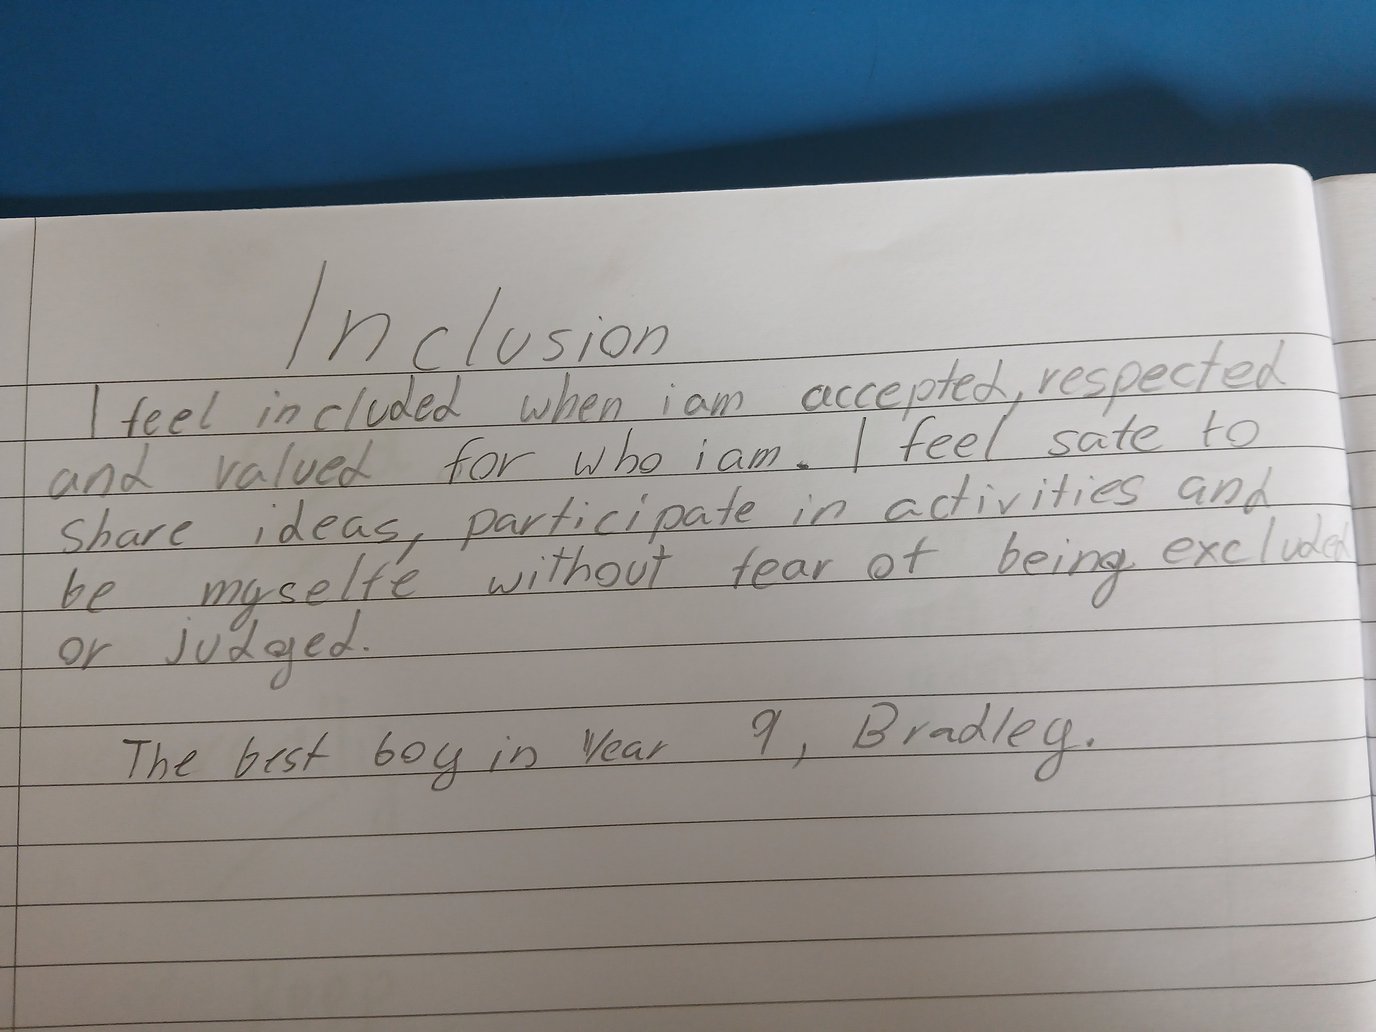 Inclusion
I feel included when i am accepted, respected
and valued for who i am. I feel safe to
share ideas, participate in activities and
be myselfe without fear of being excluded
or judged.
The best boy in Year 9, Bradley.